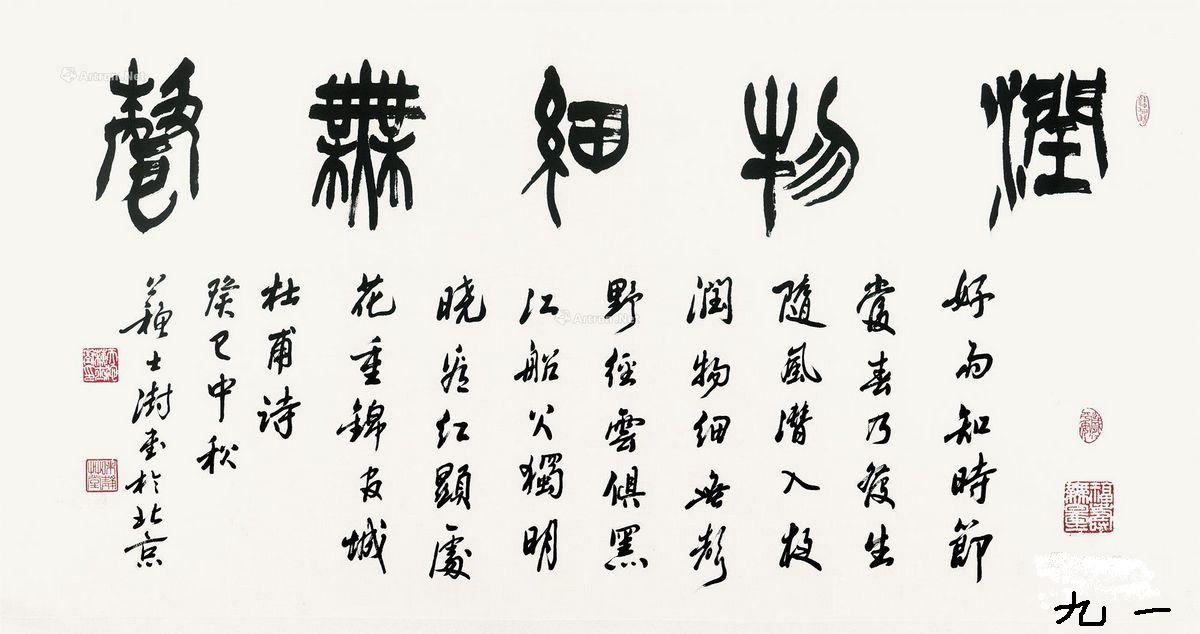 潤物細無聲
好雨知時節
當春乃發生
隨風潛入夜
潤物細無聲
野徑雲俱黑
江船火獨明
曉看紅顯處
花重錦官城
杜甫詩
癸巳中秋
蘇士澍書於北京
福壽無量
九一
Artron.Net
Artron.Net